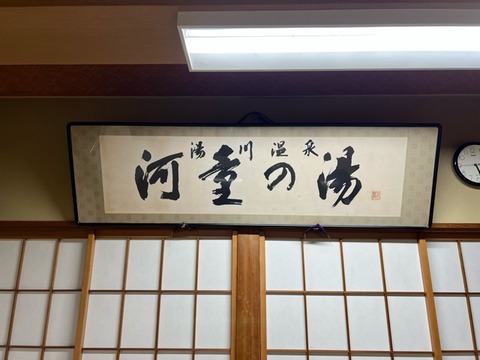 湯川温泉
河童の湯